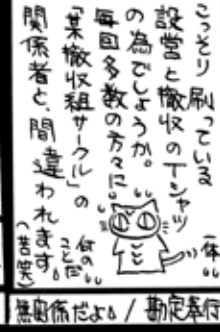 こっそり刷っている
設営と撤収のTシャツ
の為でしょうか。
毎回多数の方々に
「某撤収組サークル」の
関係者と、間違われます。
(苦笑)
一体
何の
ことだ
無関係だよ / 勘定奉行